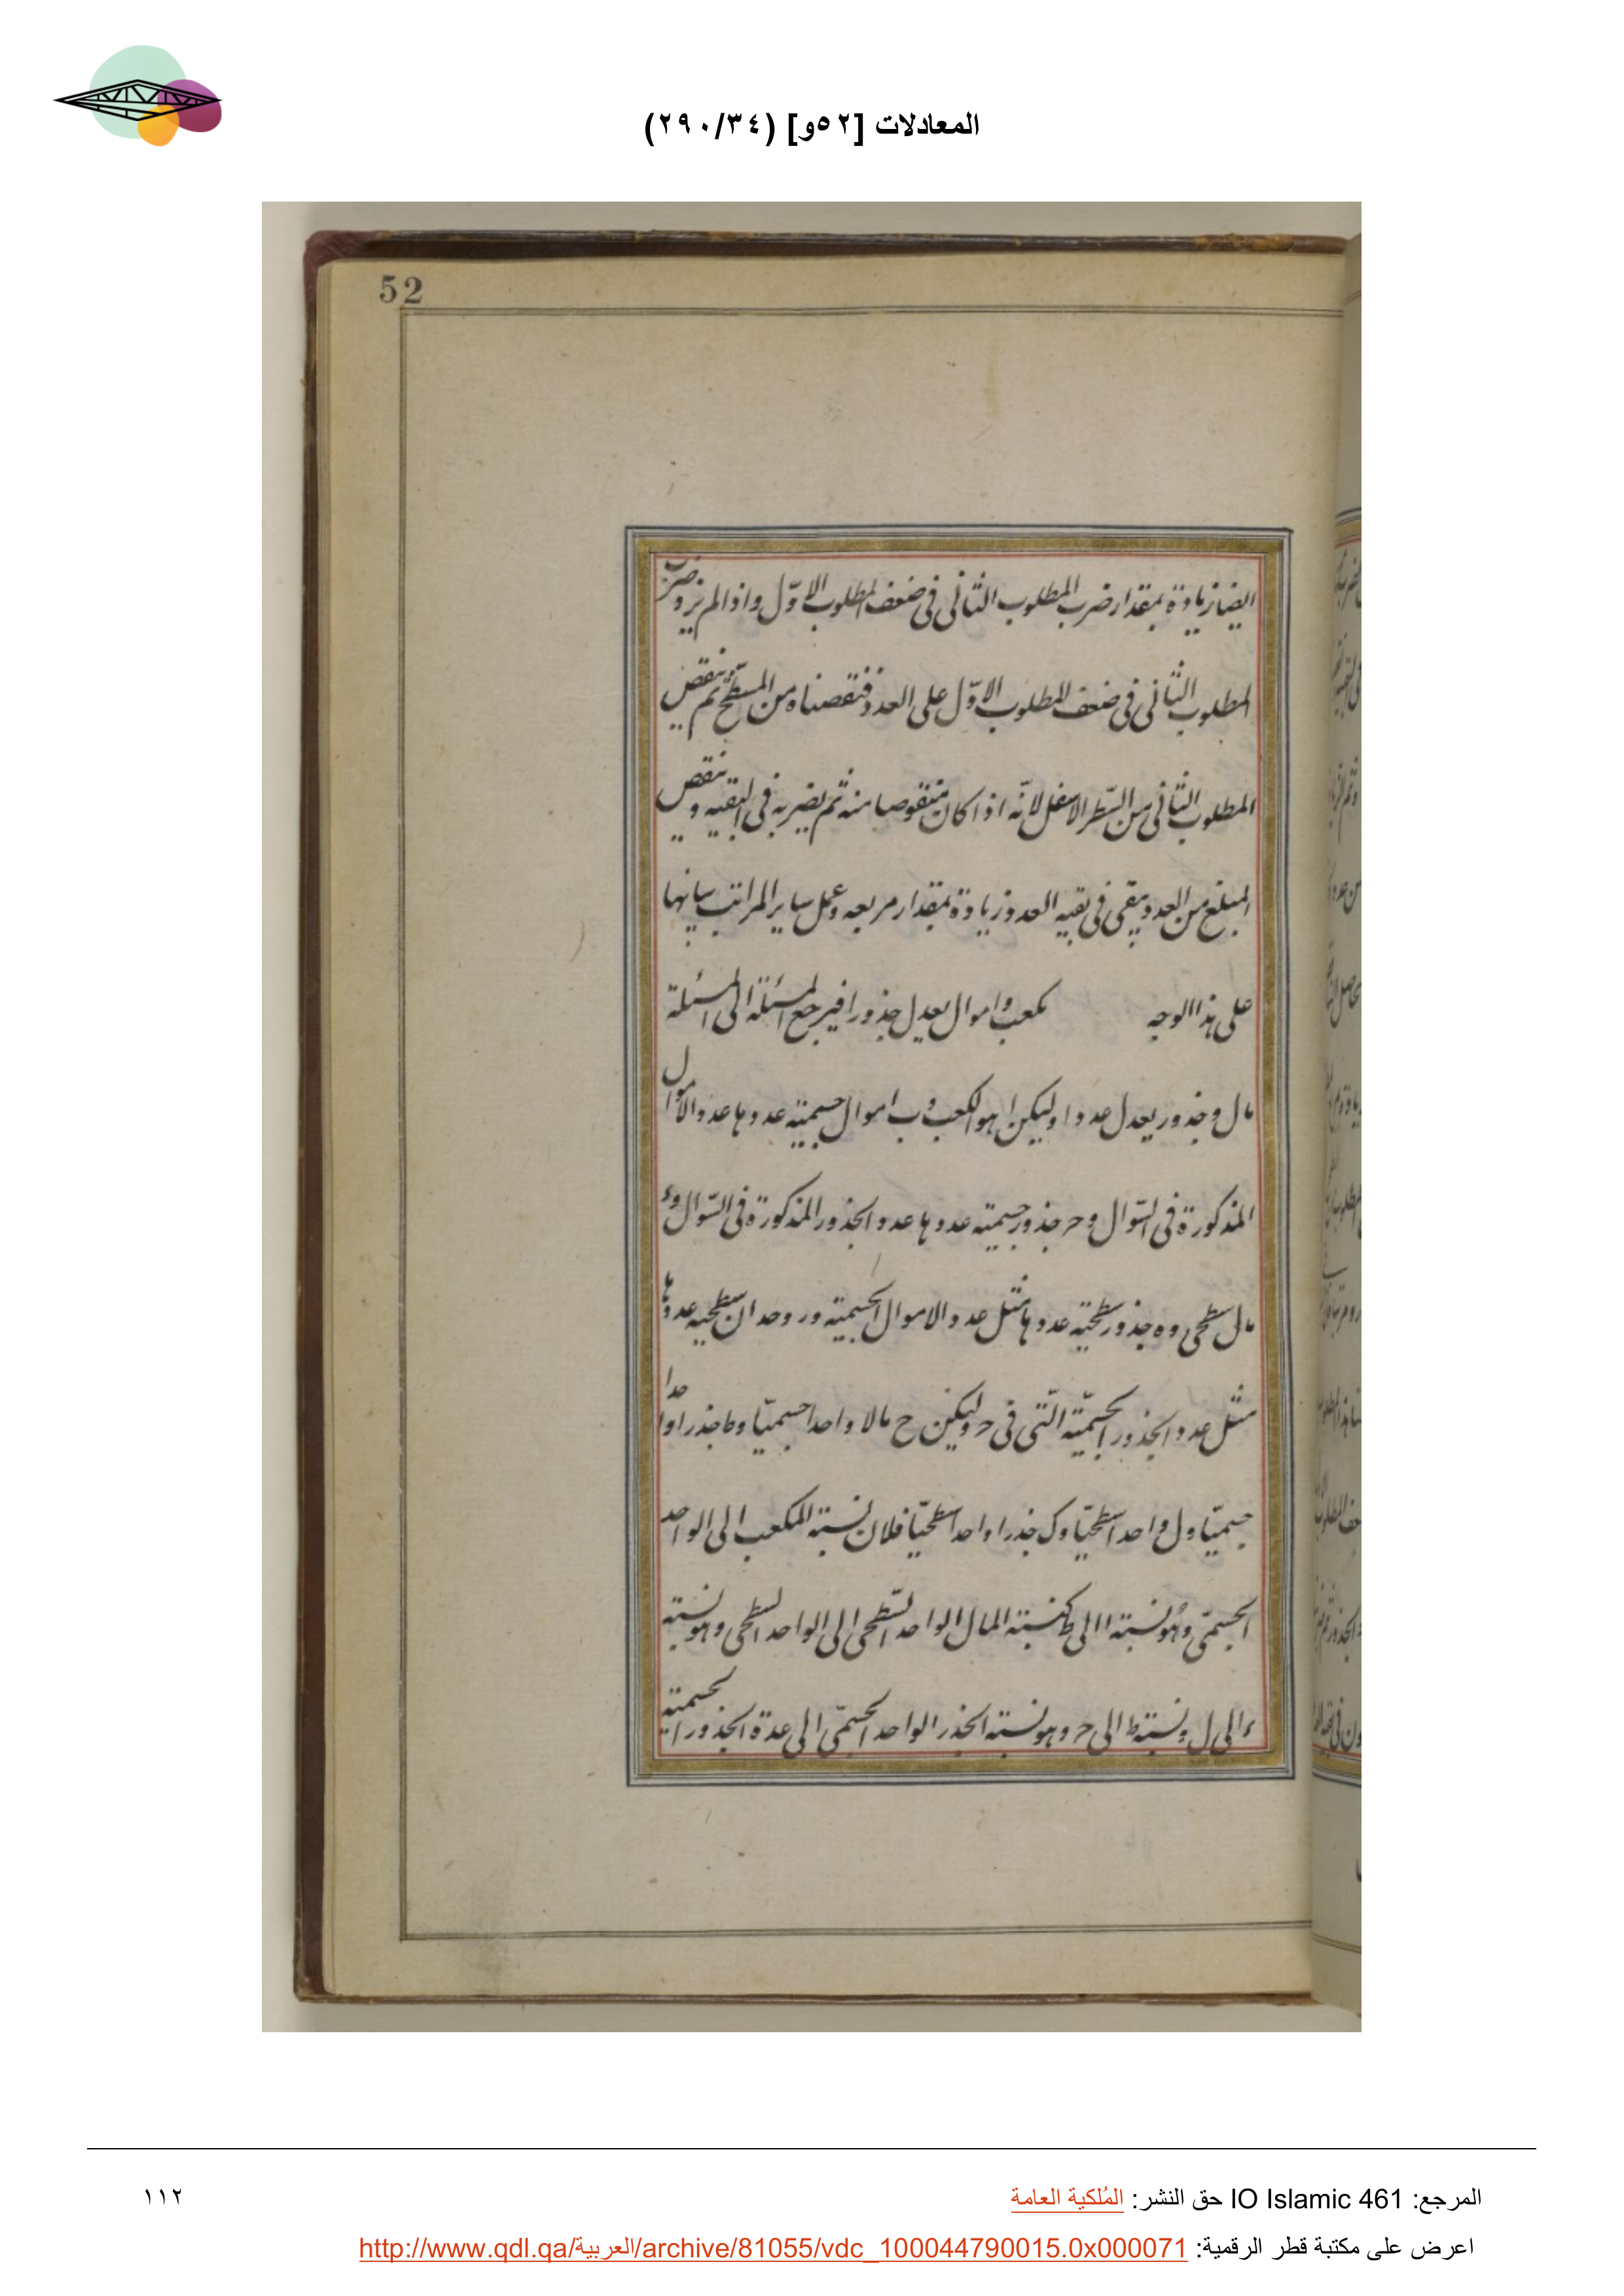 المعادلات [٥٢و] (٢٩٠/٣٤)
52
ايضا زيادة بمقدار ضرب المطلوب الثانى فى ضعف المطلوب الاوّل واذا لم نزد ضرب
المطلوب الثانى فى ضعف المطلوب الاوّل على العدد فنقصناه من المسطّح ثم ننقص
المطلوب الثانى من السّطر الاسفل لانّه اذا كان منقوصا منه ثم يضربه فى البقيه وينقص
المبلغ من العدد يبقى فى بقيه العدد زيادة بمقدار مربعه وعمل ساير المراتب بيانها
على هذا الوجه مكعب واموال يعدل جذورا فيرجع المسئلة الى المسئلة
مال وجذور يعدل عددا وليكن ا هو المكعب و ب اموال جسمية عددها عدد الاموال
المذكورة فى السّوال و ح جذور جسميته عددها عدد الجذور المذكورة فى السّوال و ء
مال سطحى و ه جذور سطحيّة عددها مثل عدد الاموال الجسمية و ر وحدان سطحيه عددها
مثل عدد الجذور الجسميّة الّتى فى ح وليكن ح مالا واحدا جسميّا و ط جذرا واحدا
جسميّا و ل واحدا سطحيّا و ك جذرا واحدا سطحيّا فلان نسبة المكعب الى الواحد
الجسمىّ وهو نسبة ا الى ط كنسبة المال الواحد السّطحى الى الواحد السطحى وهو نسبة
ء الى ل ونسبة ط الى ح وهو نسبة الجذر الواحد الجسمىّ الى عدة الجذور الجسمية
المرجع: IO Islamic 461 حق النشر: المُلكية العامة
١١٢
اعرض على مكتبة قطر الرقمية: http://www.qdl.qa/العربية/archive/81055/vdc_100044790015.0x000071